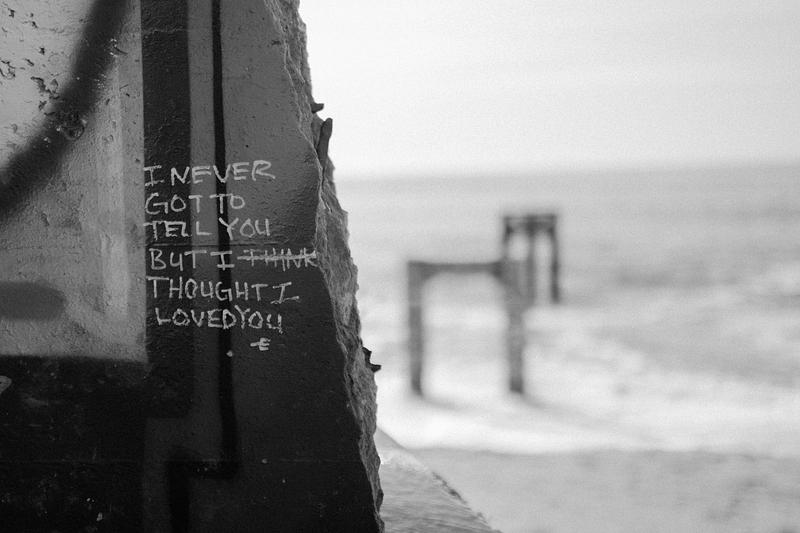 I NEVER
GOT TO
TELL YOU
BUT I THINK
THOUGHT I
LOVED YOU
. E